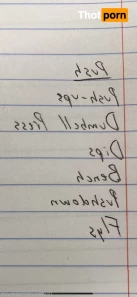 Thotporn
Push
Push-ups
Dumbell Press
Dips
Bench
Pushdown
Flys